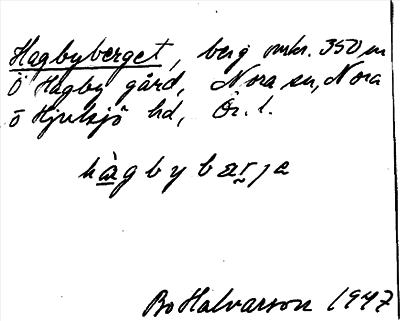 Hagbyberget, berg omkr. 350 m
Ö Hagby gård, Nora sn, Nora
o Hjulsjö hd, Ör. l.
hàgbybærja
Bo Halvarson 1947